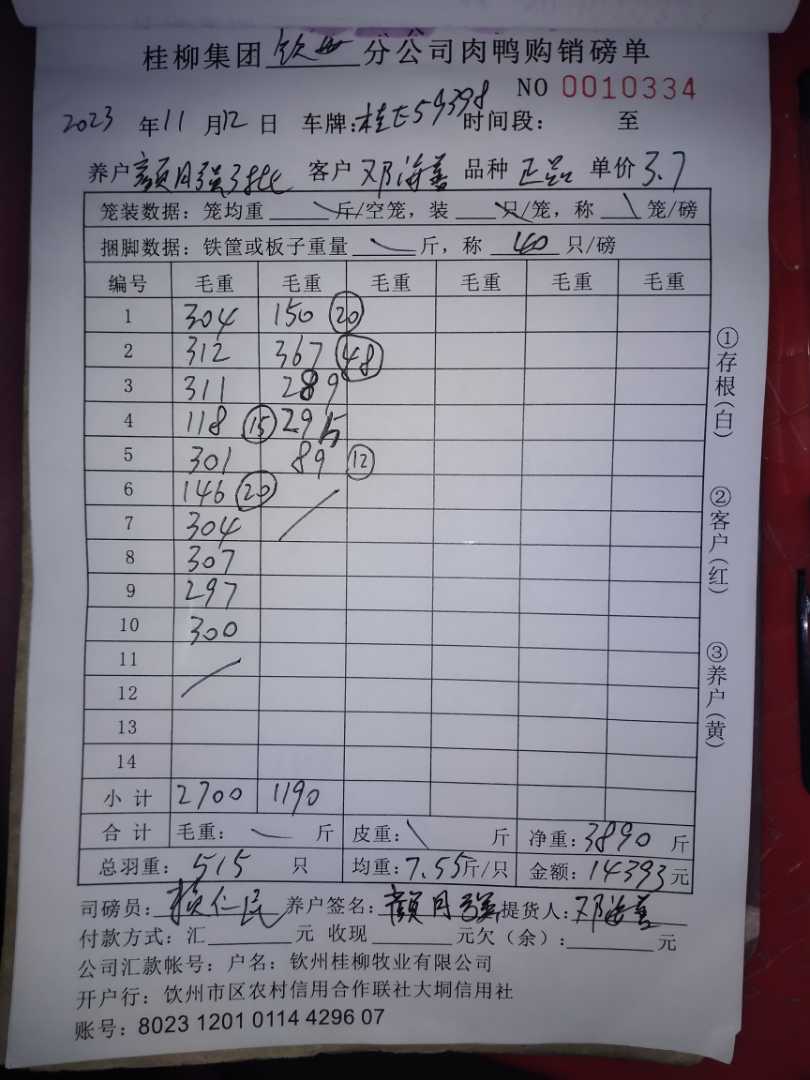 桂柳集团 钦州 分公司肉鸭购销磅单
NO 0010334
2023 年 11 月 12 日 车牌：桂E59398 时间段： 至
养户 颜月强3批 客户 邓海善 品种 正品 单价 3.7
笼装数据：笼均重 \ 斤/空笼，装 \ 只/笼，称 \ 笼/磅
捆脚数据：铁筐或板子重量 \ 斤，称 40 只/磅
编号 毛重 毛重 毛重 毛重 毛重 毛重
1 304 150 ⑳
2 312 367 ㊽
3 311 289
4 118 ⑮ 295
5 301 89 ⑫
6 146 ⑳ /
7 304
8 307
9 297
10 300
11 /
12
13
14
小计 2700 1190
合计 毛重： \ 斤 皮重： \ 斤 净重：3890 斤
总羽重：515 只 均重：7.55斤/只 金额：14393元
司磅员： 仁民 养户签名：颜月强 提货人：邓海善
付款方式：汇 元 收现 元欠（余）： 元
公司汇款帐号：户名：钦州桂柳牧业有限公司
开户行：钦州市区农村信用合作联社大垌信用社
账号：8023 1201 0114 4296 07
①存根（白）
②客户（红）
③养户（黄）